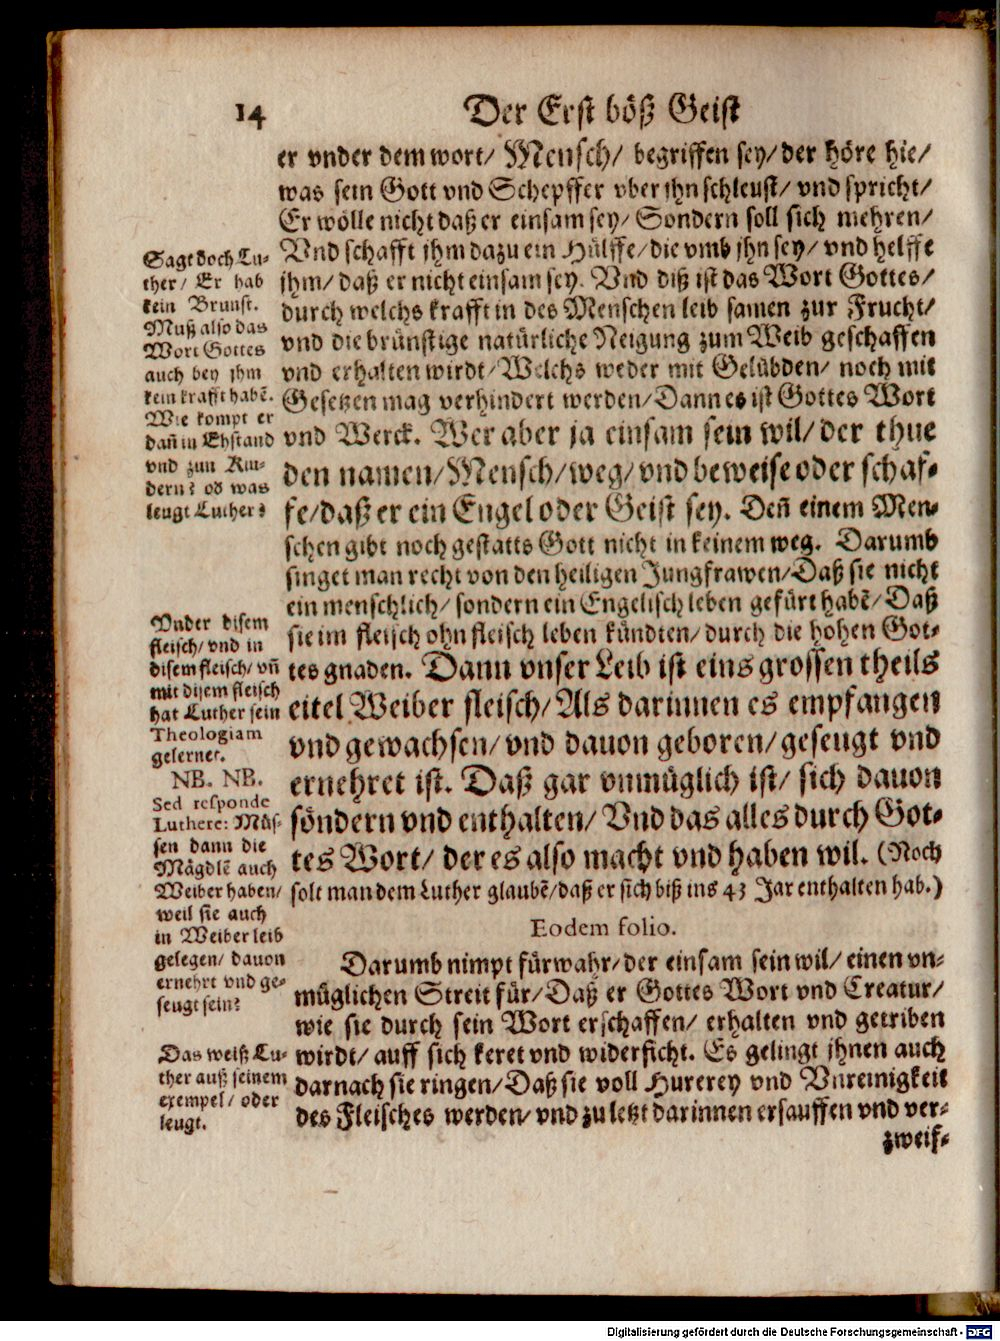 14
Der Erst böß Geist
er vnder dem wort/ Mensch/ begriffen sey/ der höre hie/
was sein Gott vnd Schepffer vber jhn schleust/ vnd spricht/
Er wölle nicht daß er einsam sey/ Sondern soll sich mehren/
Vnd schafft jhm dazu ein Hülffe/ die vmb jhn sey/ vnd helffe
jhm/ daß er nicht einsam sey. Vnd diß ist das Wort Gottes/
durch welchs krafft in des Menschen leib samen zur Frucht/
vnd die brünstige natürliche Neigung zum Weib geschaffen
vnd erhalten wirdt/ Welchs weder mit Gelübden/ noch mit
Gesetzen mag verhindert werden/ Dann es ist Gottes Wort
vnd Werck. Wer aber ja einsam sein wil/ der thue
den namen/ Mensch/ weg/ vnd beweise oder schaf-
fe/ daß er ein Engel oder Geist sey. Deñ einem Men-
schen gibt noch gestatts Gott nicht in keinem weg. Darumb
singet man recht von den heiligen Jungfrawen/ Daß sie nicht
ein menschlich/ sondern ein Engelisch leben gefürt habẽ/ Daß
sie im fleisch ohn fleisch leben kündten/ durch die hohen Got-
tes gnaden. Dann vnser Leib ist eins grossen theils
eitel Weiber fleisch/ Als darinnen es empfangen
vnd gewachsen/ vnd dauon geboren/ geseugt vnd
ernehret ist. Daß gar vnmüglich ist/ sich dauon
söndern vnd enthalten/ Vnd das alles durch Got-
tes Wort/ der es also macht vnd haben wil. (Noch
solt man dem Luther glaubẽ/ daß er sich biß ins 43 Jar enthalten hab.)
Eodem folio.
Darumb nimpt fürwahr/ der einsam sein wil/ einen vn-
müglichen Streit für/ Daß er Gottes Wort vnd Creatur/
wie sie durch sein Wort erschaffen/ erhalten vnd getriben
wirdt/ auff sich keret vnd widerficht. Es gelingt jhnen auch
darnach sie ringen/ Daß sie voll Hurerey vnd Vnreinigkeit
des Fleisches werden/ vnd zu letzt darinnen ersauffen vnd ver-
zweif-
Sagt doch Lu-
ther/ Er hab
kein Brunst.
Muß also das
Wort Gottes
auch bey jhm
kein krafft habẽ.
Wie kompt er
dañ in Ehstand
vnd zun Kin-
dern? ob was
leugt Luther?
Vnder disem
fleisch/ vnd in
disem fleisch/ vñ
mit disem fleisch
hat Luther sein
Theologiam
gelernet.
NB. NB.
Sed responde
Luthere: Müs-
sen dann die
Mägdlẽ auch
Weiber haben/
weil sie auch
in Weiber leib
gelegen/ dauon
ernehrt vnd ge-
seugt sein?
Das weiß Lu-
ther auß seinem
exempel/ oder
leugt.
Digitalisierung gefördert durch die Deutsche Forschungsgemeinschaft - DFG